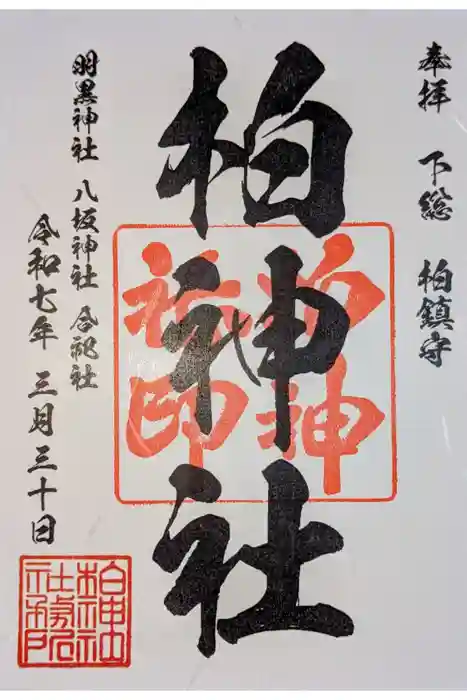 奉拝 下総 柏鎮守
柏神社
羽黒神社 八坂神社 合祀社
令和七年 三月三十日
柏神社印
柏神社社務所之印